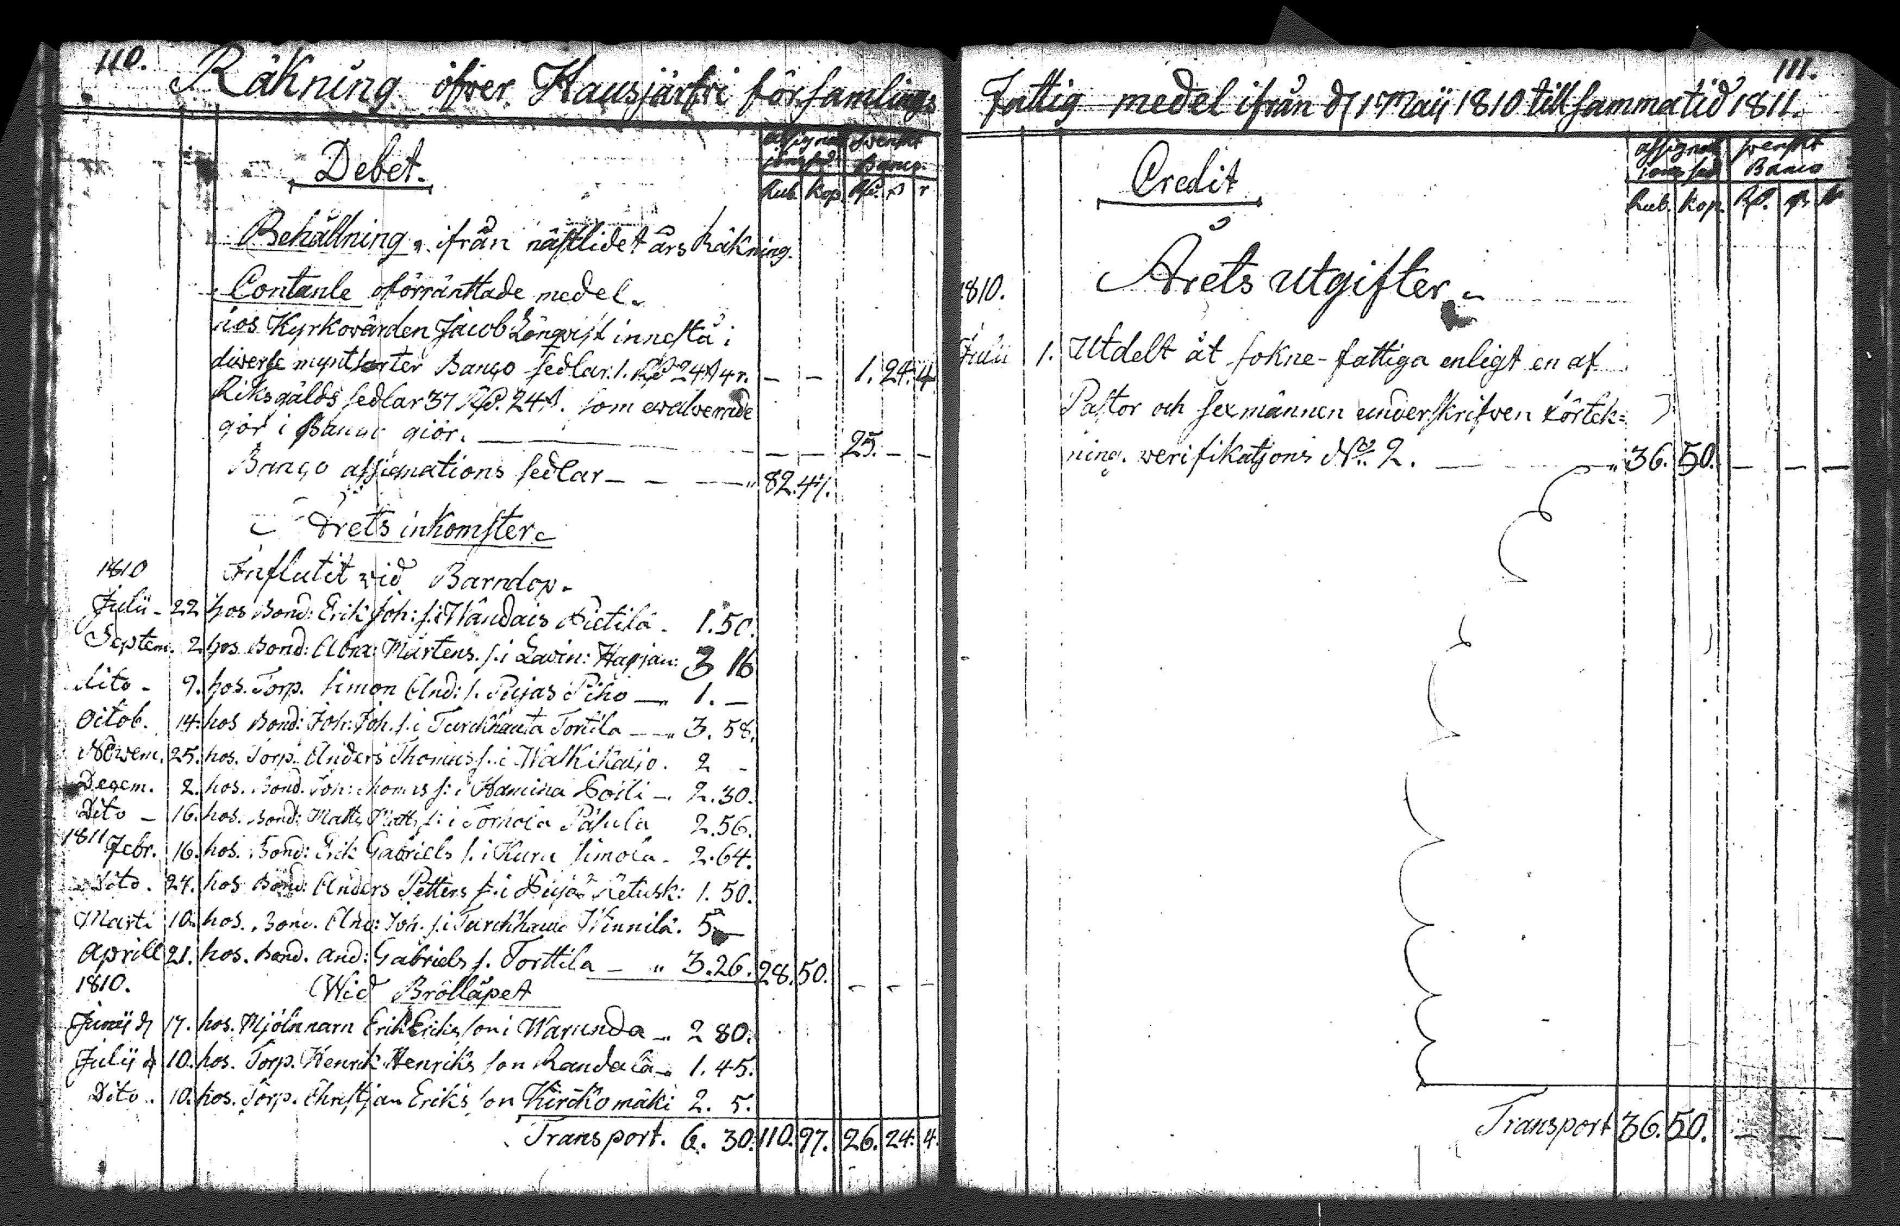 110.
Räkning öfver Hausjärfvi församlings
Debet.
assignat: swenskt
Banco.
Rub. Kop. Rd. ß r
Behållning ifrån nästlidet års Räkning.
Contante oförräntade medel.
hos Kyrkovärden Jacob Lönqvist innestå i
diverse myntsorter Banco sedlar. 1. Rd 24 ß 4 r. — — 1. 24. 4
Riksgälds sedlar 37 Rd. 24 ß. som evalverade
gör i Banco giör. — — — 25. — —
Banco assignations sedlar — — — 82. 47.
Årets inkomster
1810 Influtit vid Barndop.
Julii - 22 hos Bond: Erik Joh: s. i Wåndais Pietilä. 1. 50.
Septem. 2. hos Bond: Abra: Mårtens. s. i Lavin: Hapjau: 3 16
dito - 9. hos. Torp. Simon And: s. Piho — 1. —
Octob. 14. hos Bond: Joh: Joh. s. i Turckhauta Torttila — 3. 58.
Novem. 25. hos. Torp. Anders Thomas s. i 2 -
Decem. 2. hos. Bond. Joh: Thomas s: i Hamina — 2. 30.
Dito — 16. hos. Bond: Matts Matts s: i 2. 56.
1811 Febr. 16. hos. Bond: Erik Gabriels s. i Kuru Simola - 2. 64.
Dito. 24. hos Bond: Anders Petters s. i 1. 50.
Marti 10. hos. Bond. And: Joh. s. i Turckhauta 5 —
Aprill 21. hos. Bond. And: Gabriels s. Torttila — „ 3. 26. 28. 50. - - -
1810. Wid Bröllåpet
Junij d 17. hos. Mjölnnarn Erik Eriks son i Warunda — 2 80.
Julii d 10. hos. Torp. Henrik Henriks son Randala — 1. 45.
Dito. 10. hos. Torp. Christjan Eriks son Kirckomäki 2. 5.
Transport. 6. 30. 110. 97. 26. 24. 4.
111.
Fattig medel ifrån d 1 Maij 1810 till samma tid 1811.
Credit
assignat swenskt
Banco
Rub. Kop. Rd. ß r
1810. Årets utgifter
Julii 1. Utdelt åt sokne-fattiga enligt en af
Pastor och sexmännen underskrifwen förtek-
ning. verifikatjons No. 2. — 36. 50. — — —
Transport 36. 50. — — —